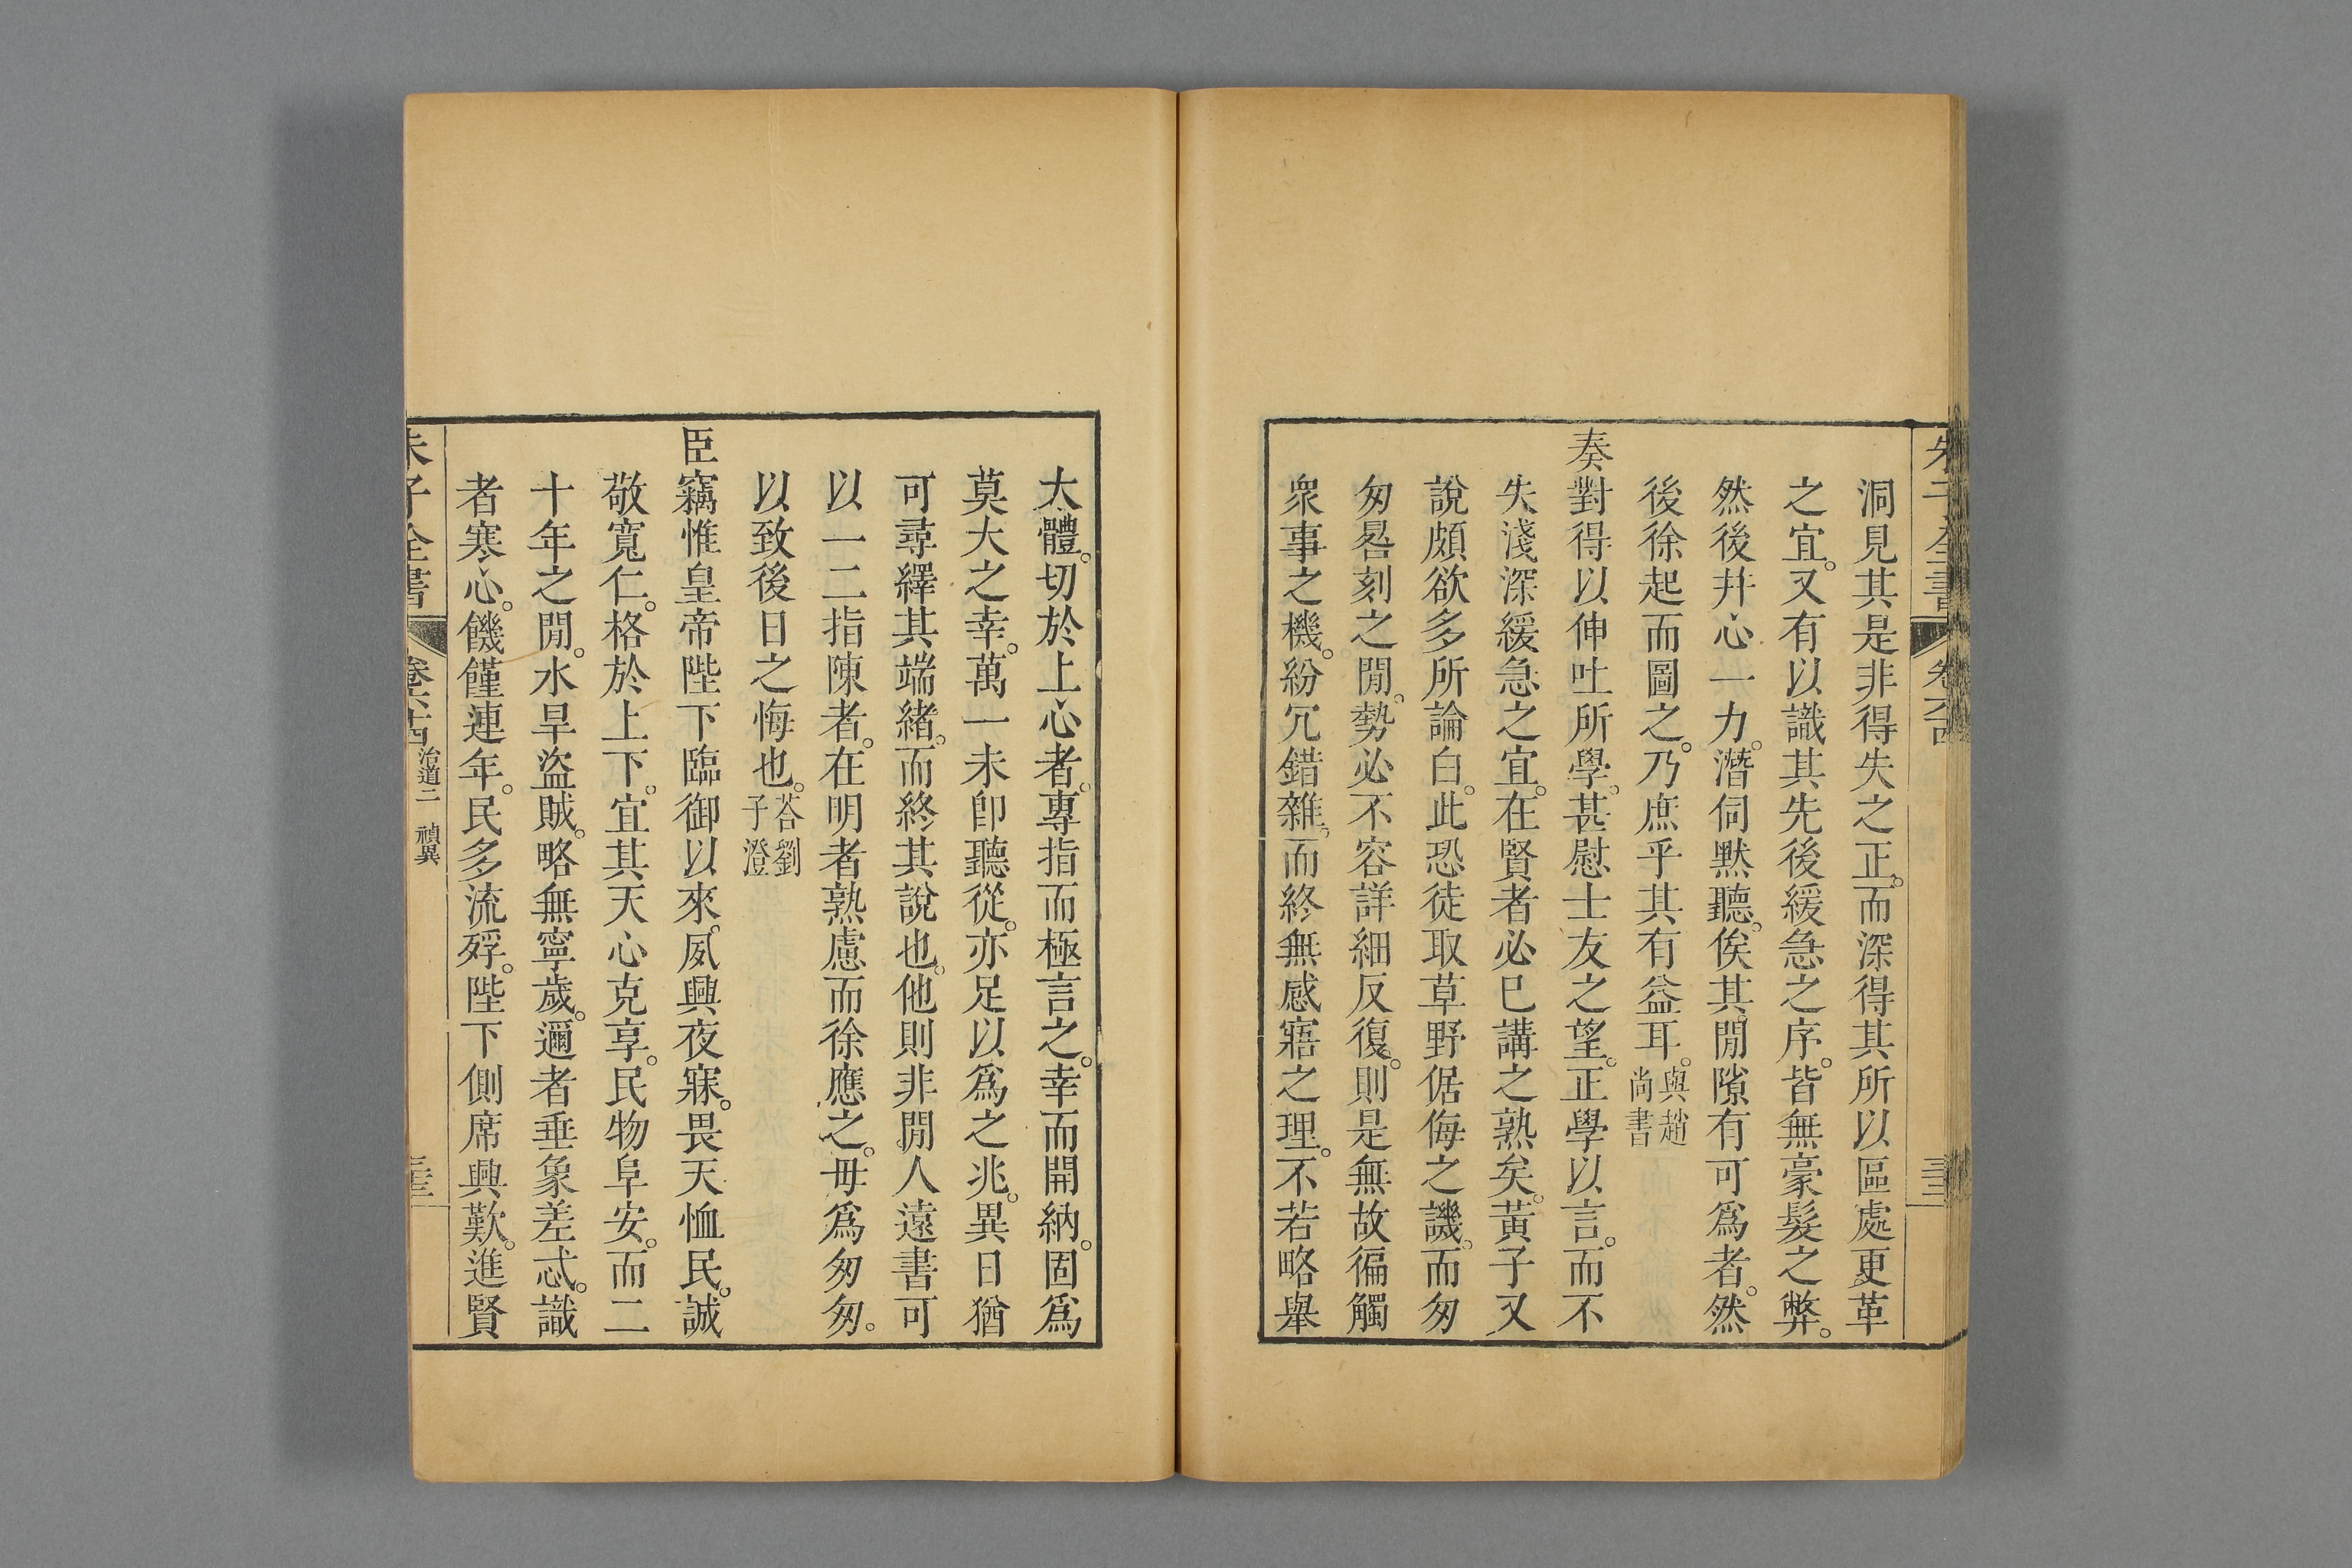 洞見其是非得失之正。而深得其所以區處更革
之宜。又有以識其先後緩急之序。皆無豪髮之弊。
然後幷心一力。潛伺默聽。俟其閒隙有可爲者。然
後徐起而圖之。乃庶乎其有益耳。與趙尚書
奏對得以伸吐所學。甚慰士友之望。正學以言。而不
失淺深緩急之宜。在賢者必已講之熟矣。黃子又
說頗欲多所論白。此恐徒取草野倨侮之譏。而匆
匆晷刻之閒。勢必不容詳細反復。則是無故徧觸
衆事之機。紛冗錯雜。而終無感寤之理。不若略舉
大體。切於上心者。專指而極言之。幸而開納。固爲
莫大之幸。萬一未卽聽從。亦足以爲之兆。異日猶
可尋繹其端緒。而終其說也。他則非閒人遠書可
以一二指陳者。在明者熟慮而徐應之。毋爲匆匆。
以致後日之悔也。荅劉子澄
臣竊惟皇帝陛下臨御以來。夙興夜寐。畏天恤民。誠
敬寬仁。格於上下。宜其天心克享。民物阜安。而二
十年之閒。水旱盜賊。略無寧歲。邇者垂象差忒。識
者寒心。饑僅連年。民多流殍。陛下側席興歎。進賢
朱子全書
卷六十四
治道二 禎異